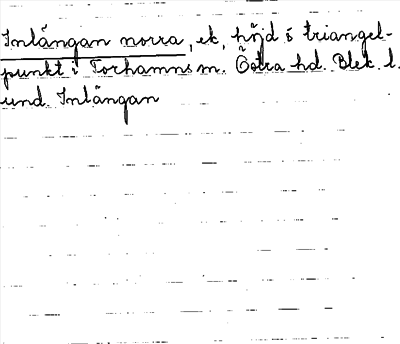 Inlängan norra, ek, höjd o triangel-
punkt i Torhamns m. Östra hd. Blek. l.
und. Inlängan